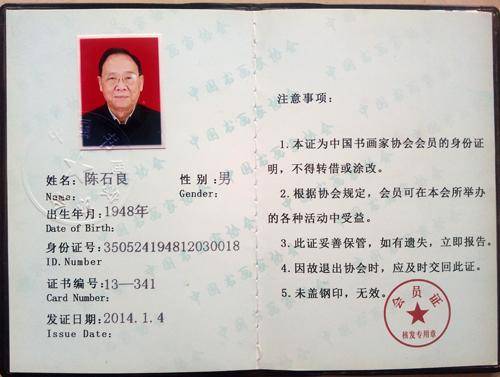 姓名：陈石良 性别：男
Name: Gender:
出生年月：1948年
Date of Birth:
身份证号：350524194812030018
ID.Number
证书编号：13—341
Card Number:
发证日期：2014.1.4
Issue Date:
注意事项：
1．本证为中国书画家协会会员的身份证
明，不得转借或涂改。
2．根据协会规定，会员可在本会所举办
的各种活动中受益。
3．此证妥善保管，如有遗失，立即报告。
4．因故退出协会时，应及时交回此证。
5．未盖钢印，无效。
会员证
核发专用章
中国书画家协会